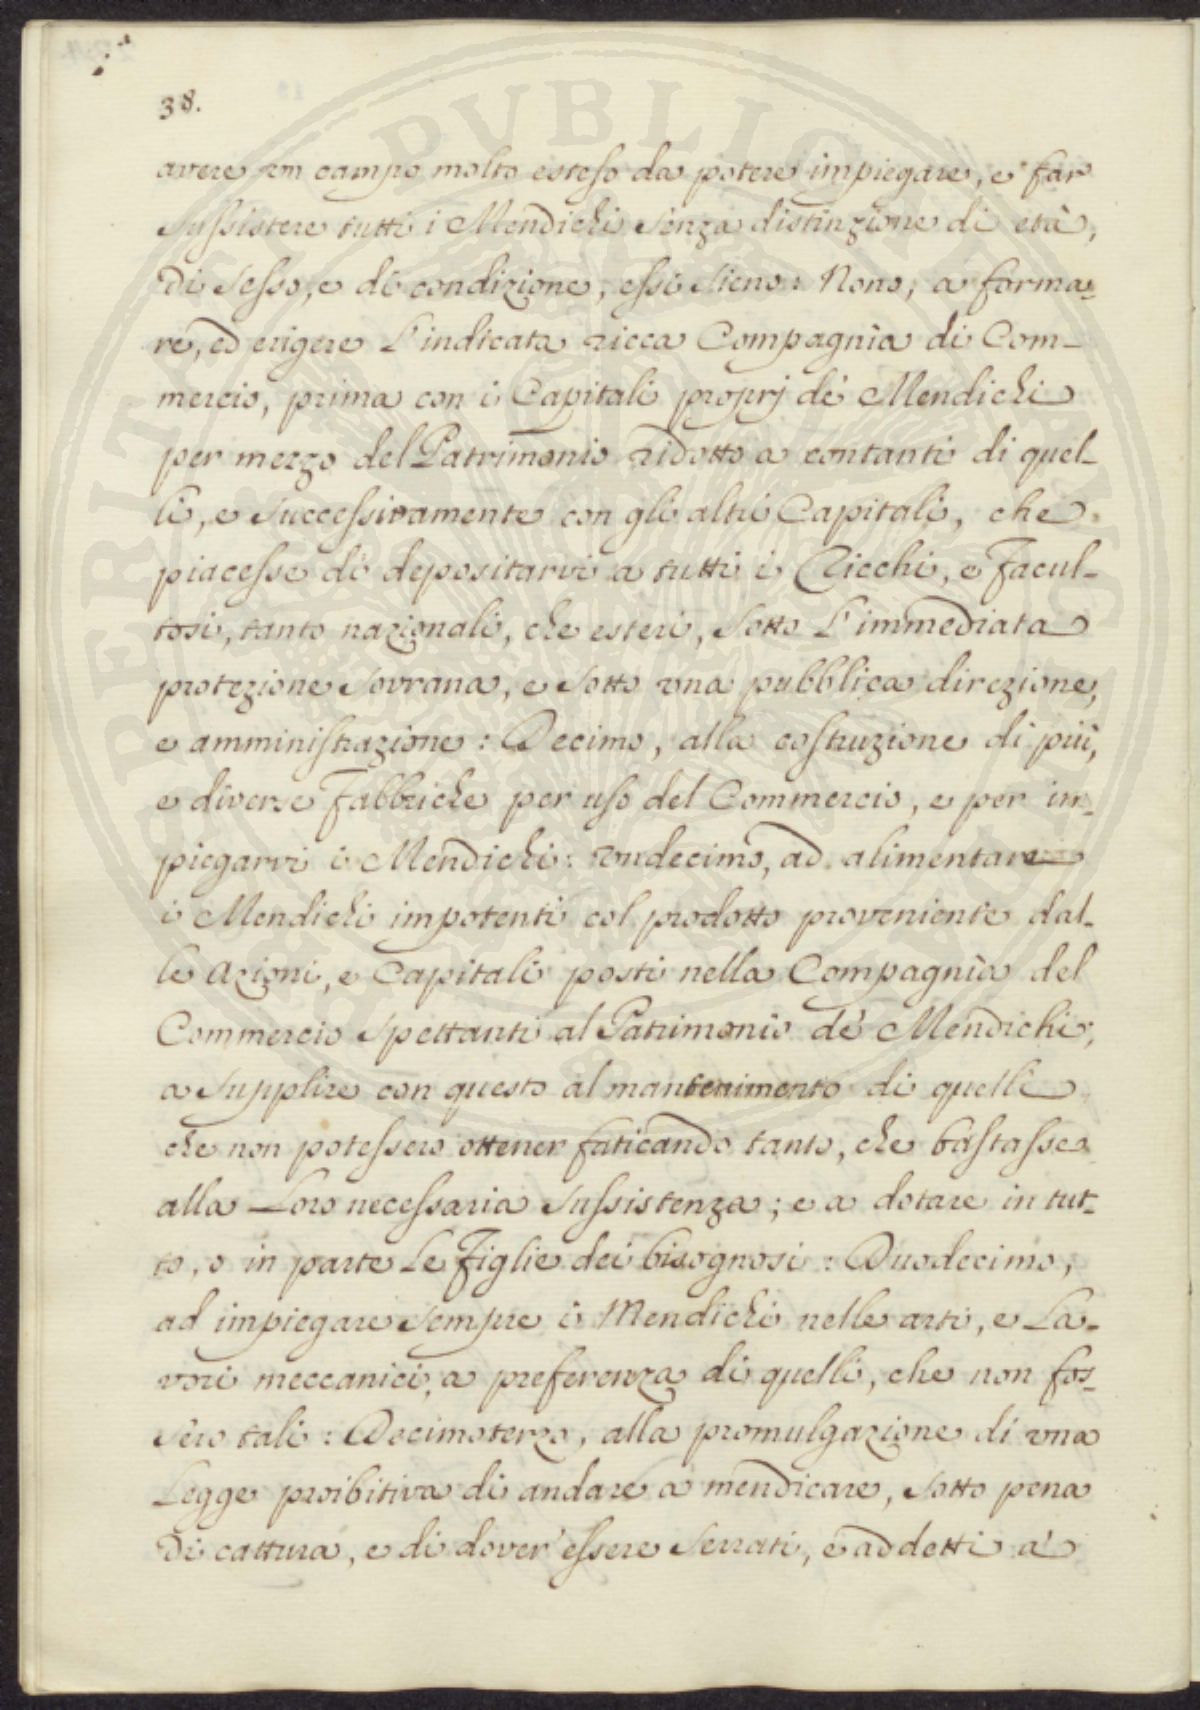 38.
avere un campo molto esteso da potere impiegare, e far
sussistere tutti i Mendichi senza distinzione di età,
di sesso, e di condizione, essi sieno: Nono, a forma-
re, ed erigere l'indicata ricca Compagnìa di Com-
mercio, prima con i Capitali proprj de' Mendichi
per mezzo del Patrimonio ridotto a contanti di quel-
li, e successivamente con gli altri Capitali, che
piacesse di depositarvi a tutti i Ricchi, e Facul-
tosi, tanto nazionali, che esteri, sotto l'immediata
protezione sovrana, e sotto una pubblica direzione,
e amministrazione: Decimo, alla costruzione di più,
e diverse Fabbriche per uso del Commercio, e per im-
piegarvi i Mendichi: undecimo, ad alimentare
i Mendichi impotenti col prodotto proveniente dal-
le Azioni, e Capitali posti nella Compagnìa del
Commercio spettanti al Patrimonio de' Mendichi;
a supplire con questo al mantenimento di quelli
che non potessero ottener faticando tanto, che bastasse
alla Loro necessaria sussistenza; e a dotare in tut-
to, o in parte le Figlie dei bisognosi: Duodecimo,
ad impiegare sempre i Mendichi nelle arti, e La-
vori meccanici, a preferenza di quelli, che non fos-
sero tali: Decimoterzo, alla promulgazione di una
Legge proibitiva di andare a mendicare, sotto pena
di cattura, e di dover'essere serrati, e addetti a'
PERITE PUBLIO